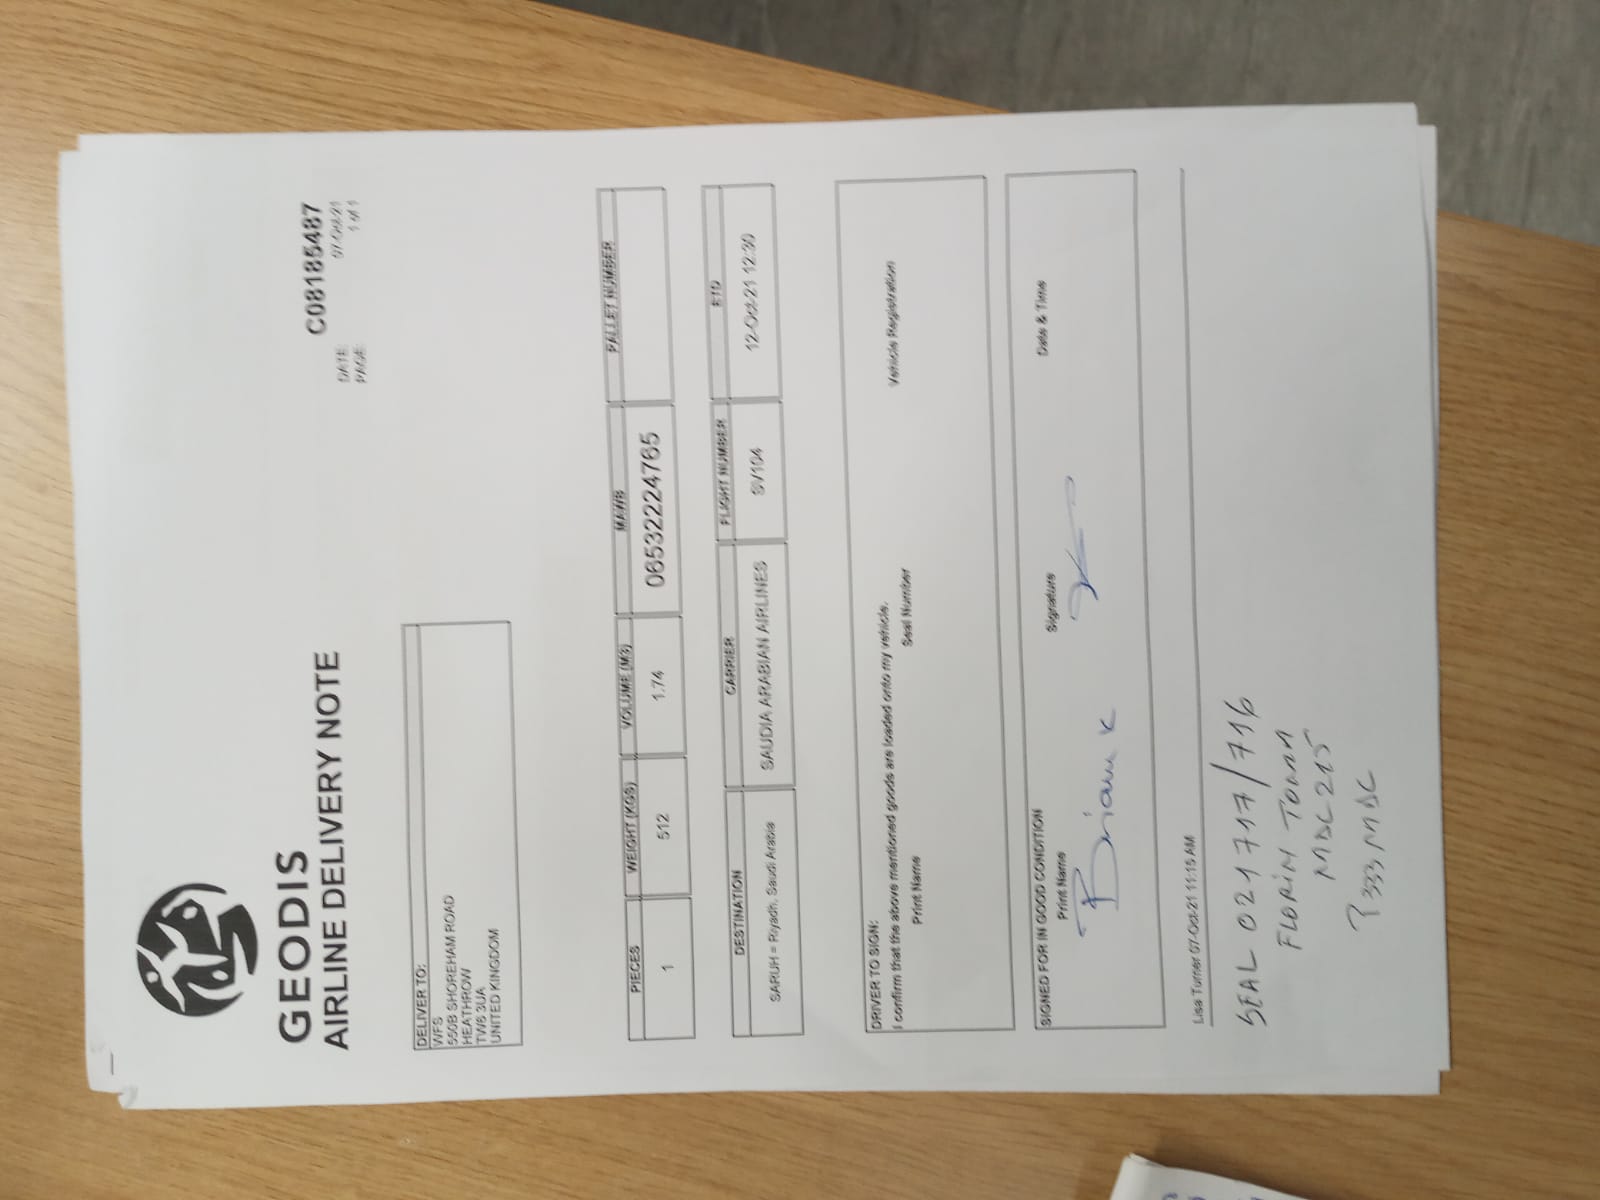 GEODIS
AIRLINE DELIVERY NOTE
C08185487
DATE: 07-Oct-21
PAGE: 1 of 1
DELIVER TO:
WFS
550B SHOREHAM ROAD
HEATHROW
TW6 3UA
UNITED KINGDOM
PIECES WEIGHT (KGS) VOLUME (M3) MAWB PALLET NUMBER
1 512 1.74 06532224765
DESTINATION CARRIER FLIGHT NUMBER ETD
SARUH = Riyadh, Saudi Arabia SAUDIA ARABIAN AIRLINES SV104 12-Oct-21 12:30
DRIVER TO SIGN:
I confirm that the above mentioned goods are loaded onto my vehicle.
Print Name Seal Number Vehicle Registration
SIGNED FOR IN GOOD CONDITION
Print Name Signature Date & Time
Lisa Turner 07-Oct-21 11:15 AM
SEAL 021717/716
FLORIN TOMA
MDC215